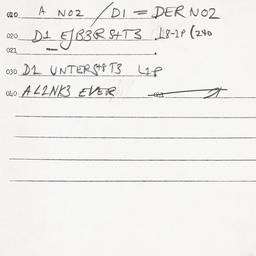 020 A NO2 / D1 = DER NO2
020 D1 EJB3R S4T3 L8-1P (240
021
030 D1 UNTERS4T3 L1P
040 AL1NK3 EVER